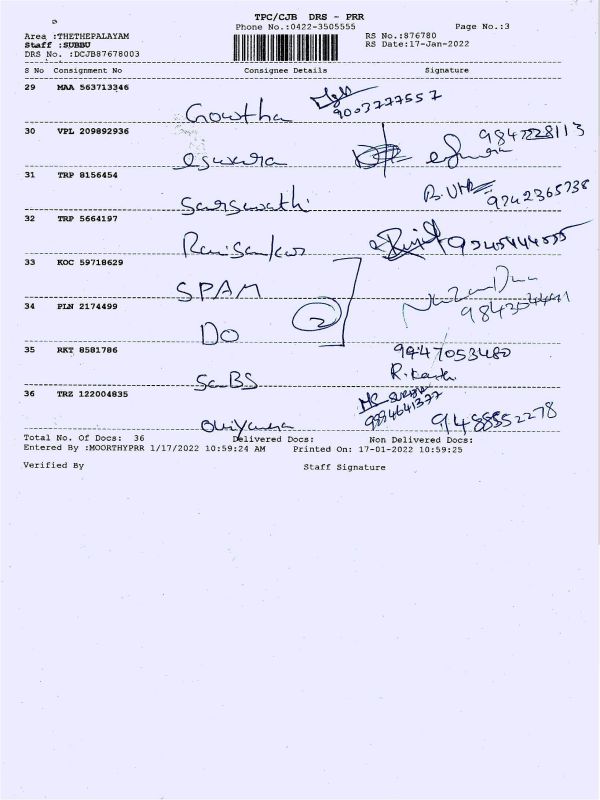 TPC/CJB DRS - PRR
Phone No.:0422-3505555 Page No.:3
Area :THETHEPALAYAM RS No.:876780
Staff :SUBBU RS Date:17-Jan-2022
DRS No. :DCJB87678003
S No Consignment No Consignee Details Signature
29 MAA 563713346
Gowtha 9003777557
30 VPL 209892936
eswara 9847228113
31 TRP 8156454
Sarswathi B. UMA 9742365738
32 TRP 5664197
Ravisankar
33 KOC 59718629
SPAM
34 PLN 2174499
DO 2
35 RKT 8581786 9947053480
SaBS R. Kanth
36 TRZ 122004835
9894641377 9148855 2278
Total No. Of Docs: 36 Delivered Docs: Non Delivered Docs:
Entered By :MOORTHYPRR 1/17/2022 10:59:24 AM Printed On: 17-01-2022 10:59:25
Verified By Staff Signature